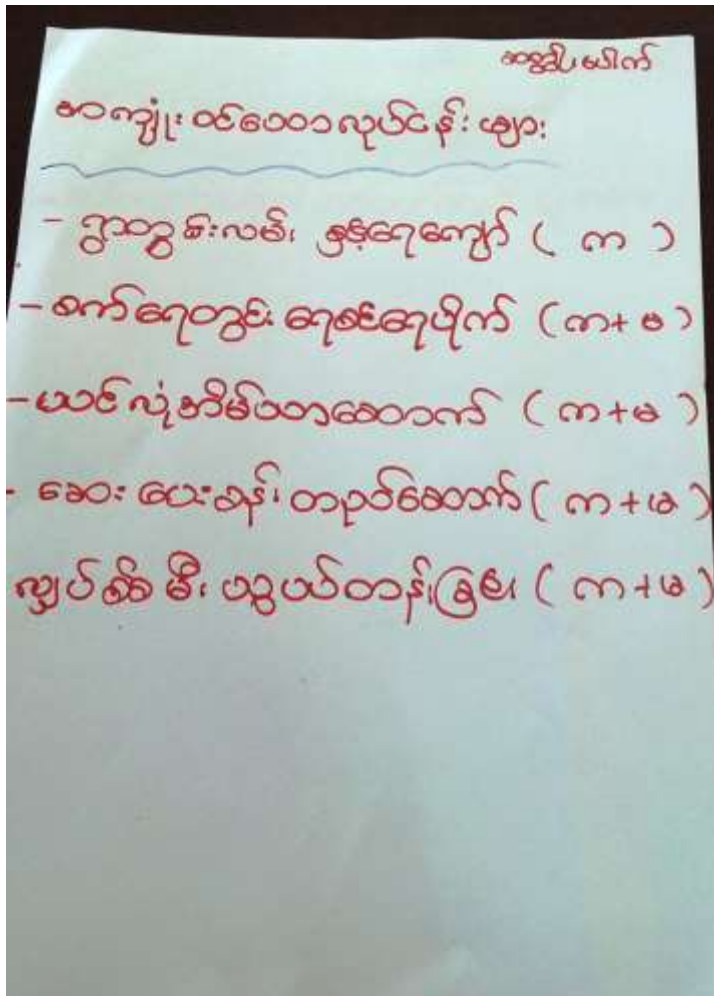 အကျုံးဝင်သောလုပ်ငန်းများ
- ရွာတွင်းလမ်း နှင့်ရေကျော် ( က )
- စက်ရေတွင်း ရေစင်ရေပိုက် (က+မ)
- ယင်လုံအိမ်သာဆောက် ( က+မ )
- ဆေးပေးခန်း တည်ဆောက် ( က+မ )
လျှပ်စစ်မီး သွယ်တန်းခြင်း ( က+မ )